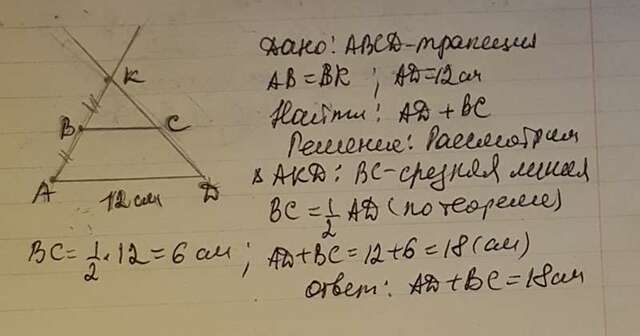 Дано: ABCD-трапеция
AB=BK ; AD=12см
Найти: AD+BC
Решение: Рассмотрим
△ AKD: BC-средняя линия
BC=1/2 AD (по теореме)
BC=1/2·12=6 см; AD+BC=12+6=18(см)
ответ: AD+BC=18см
K
B
C
A
D
12 см